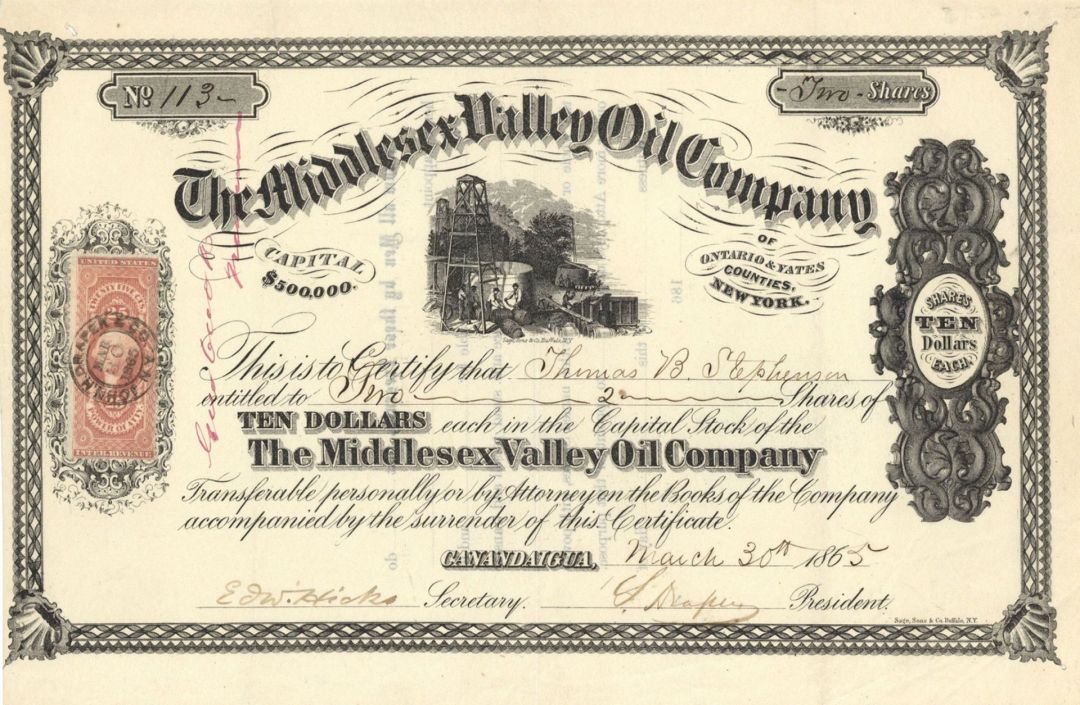 No 113-
-Two- Shares
The Middlesex Valley Oil Company
CAPITAL
$500,000.
OF
ONTARIO & YATES
COUNTIES,
NEW YORK.
Sage, Sons & Co. Buffalo, N.Y.
UNITED STATES
TWENTY FIVE CENTS
POWER OF ATT'Y
INTER. REVENUE
SHARES
TEN
Dollars
EACH.
This is to Certify that Thomas B. Stephenson
entitled to Two 2 Shares of
TEN DOLLARS each in the Capital Stock of the
The Middlesex Valley Oil Company
Transferable personally or by Attorney on the Books of the Company
accompanied by the surrender of this Certificate.
CANANDAIGUA, March 30th 1865
Edw. Hicks Secretary. President.
Sage, Sons & Co. Buffalo, N.Y.